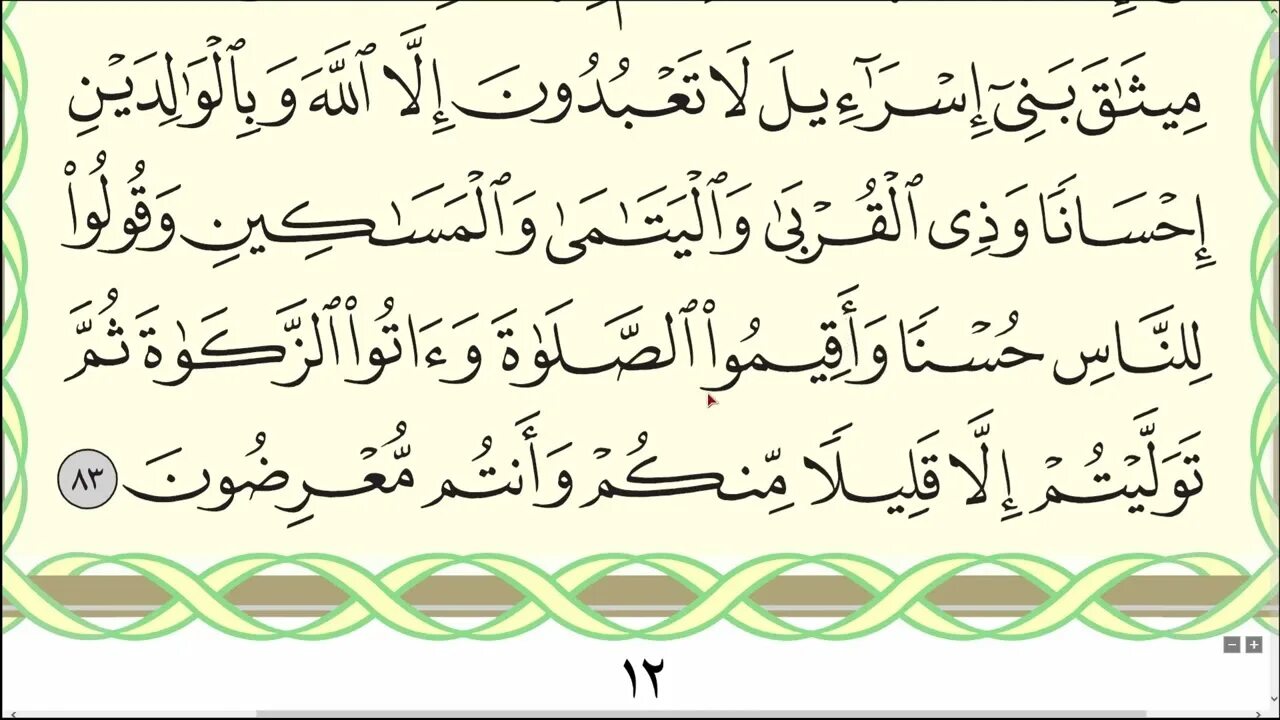 مِيثَـٰقَ بَنِىٓ إِسْرَٰٓءِيلَ لَا تَعْبُدُونَ إِلَّا ٱللَّهَ وَبِٱلْوَٰلِدَيْنِ
إِحْسَانًا وَذِى ٱلْقُرْبَىٰ وَٱلْيَتَـٰمَىٰ وَٱلْمَسَـٰكِينِ وَقُولُوا۟
لِلنَّاسِ حُسْنًا وَأَقِيمُوا۟ ٱلصَّلَوٰةَ وَءَاتُوا۟ ٱلزَّكَوٰةَ ثُمَّ
تَوَلَّيْتُمْ إِلَّا قَلِيلًا مِّنكُمْ وَأَنتُم مُّعْرِضُونَ ٨٣
١٢